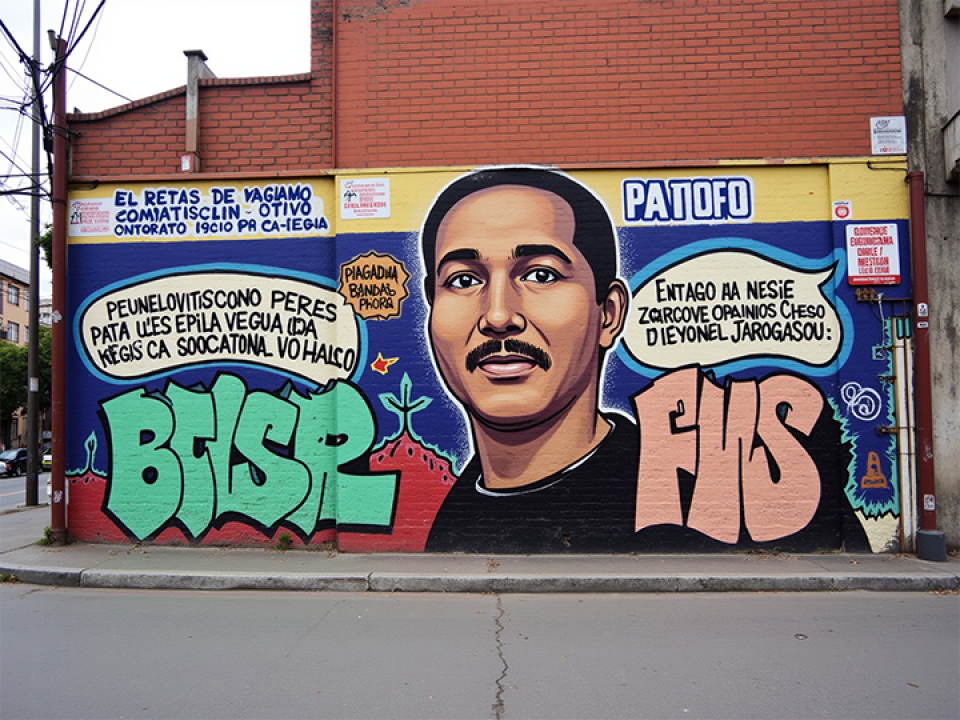 EL RETAS DE VAGIAMO
COMIATISCLIN - OTIVO
ONTORATO 19C10 PR CA-IEGIA
PATIOFO
PLAGADHA
BANDAL
PHORA
PEUNELOVITISCONO PERES
PATA ULES EPILA VEGUA
KEGIS CA SOOCATONAL VO HALCO
ENTAGO AA NESIE
ZORCOVE OPAINIOS CHESO
DIEYONEL JAROGASOU:
BTLSR
FUS